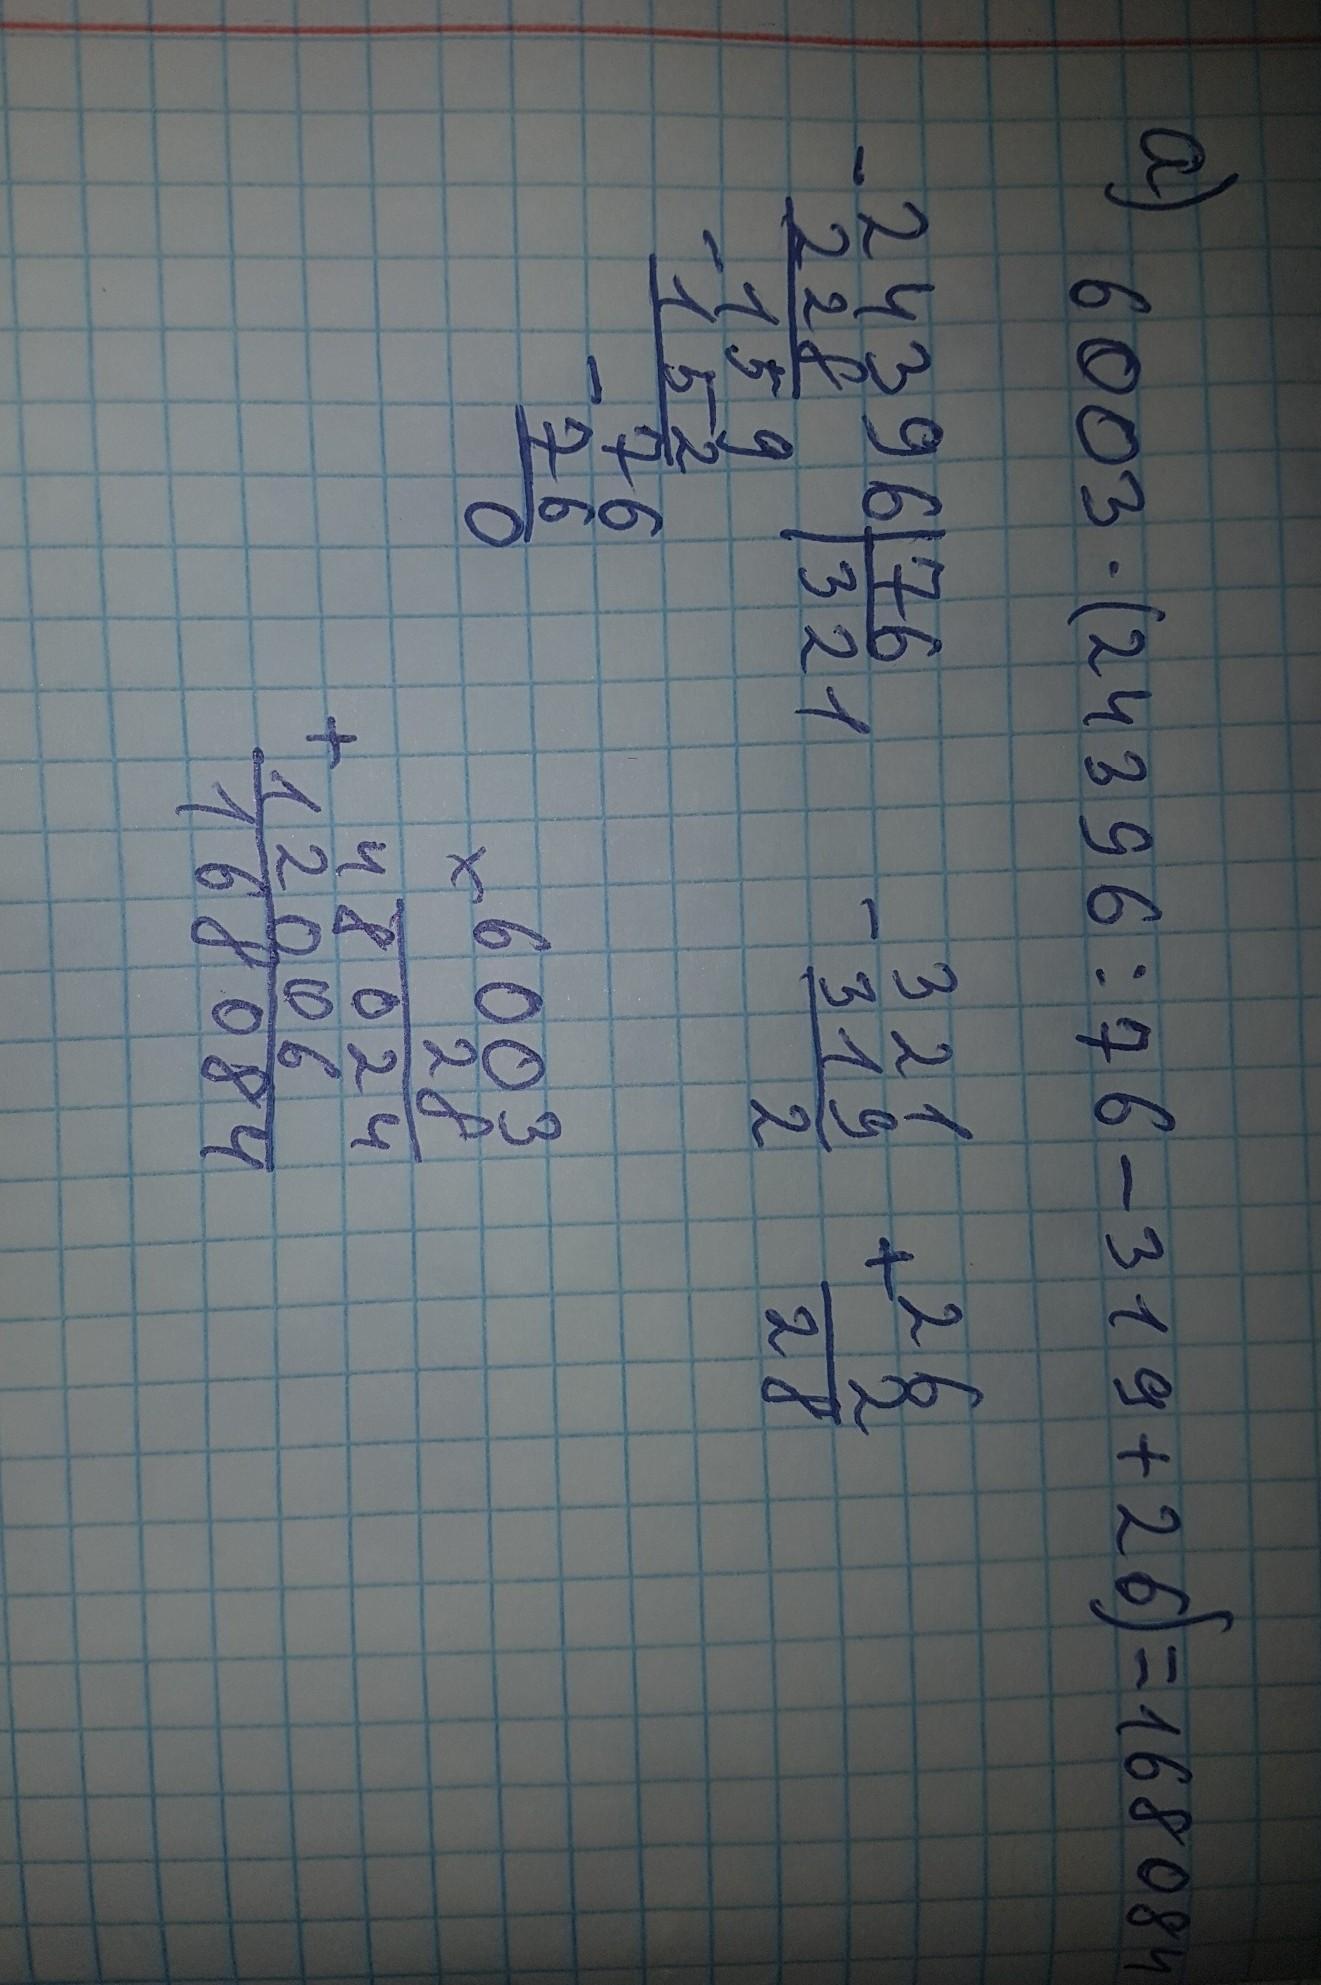 а) 6003·(24396:76-319+26)=168084
-24396|76
228 |321
-159
152
-76
76
0
-321
319
2
+26
2
28
×6003
28
+48024
12006
168084